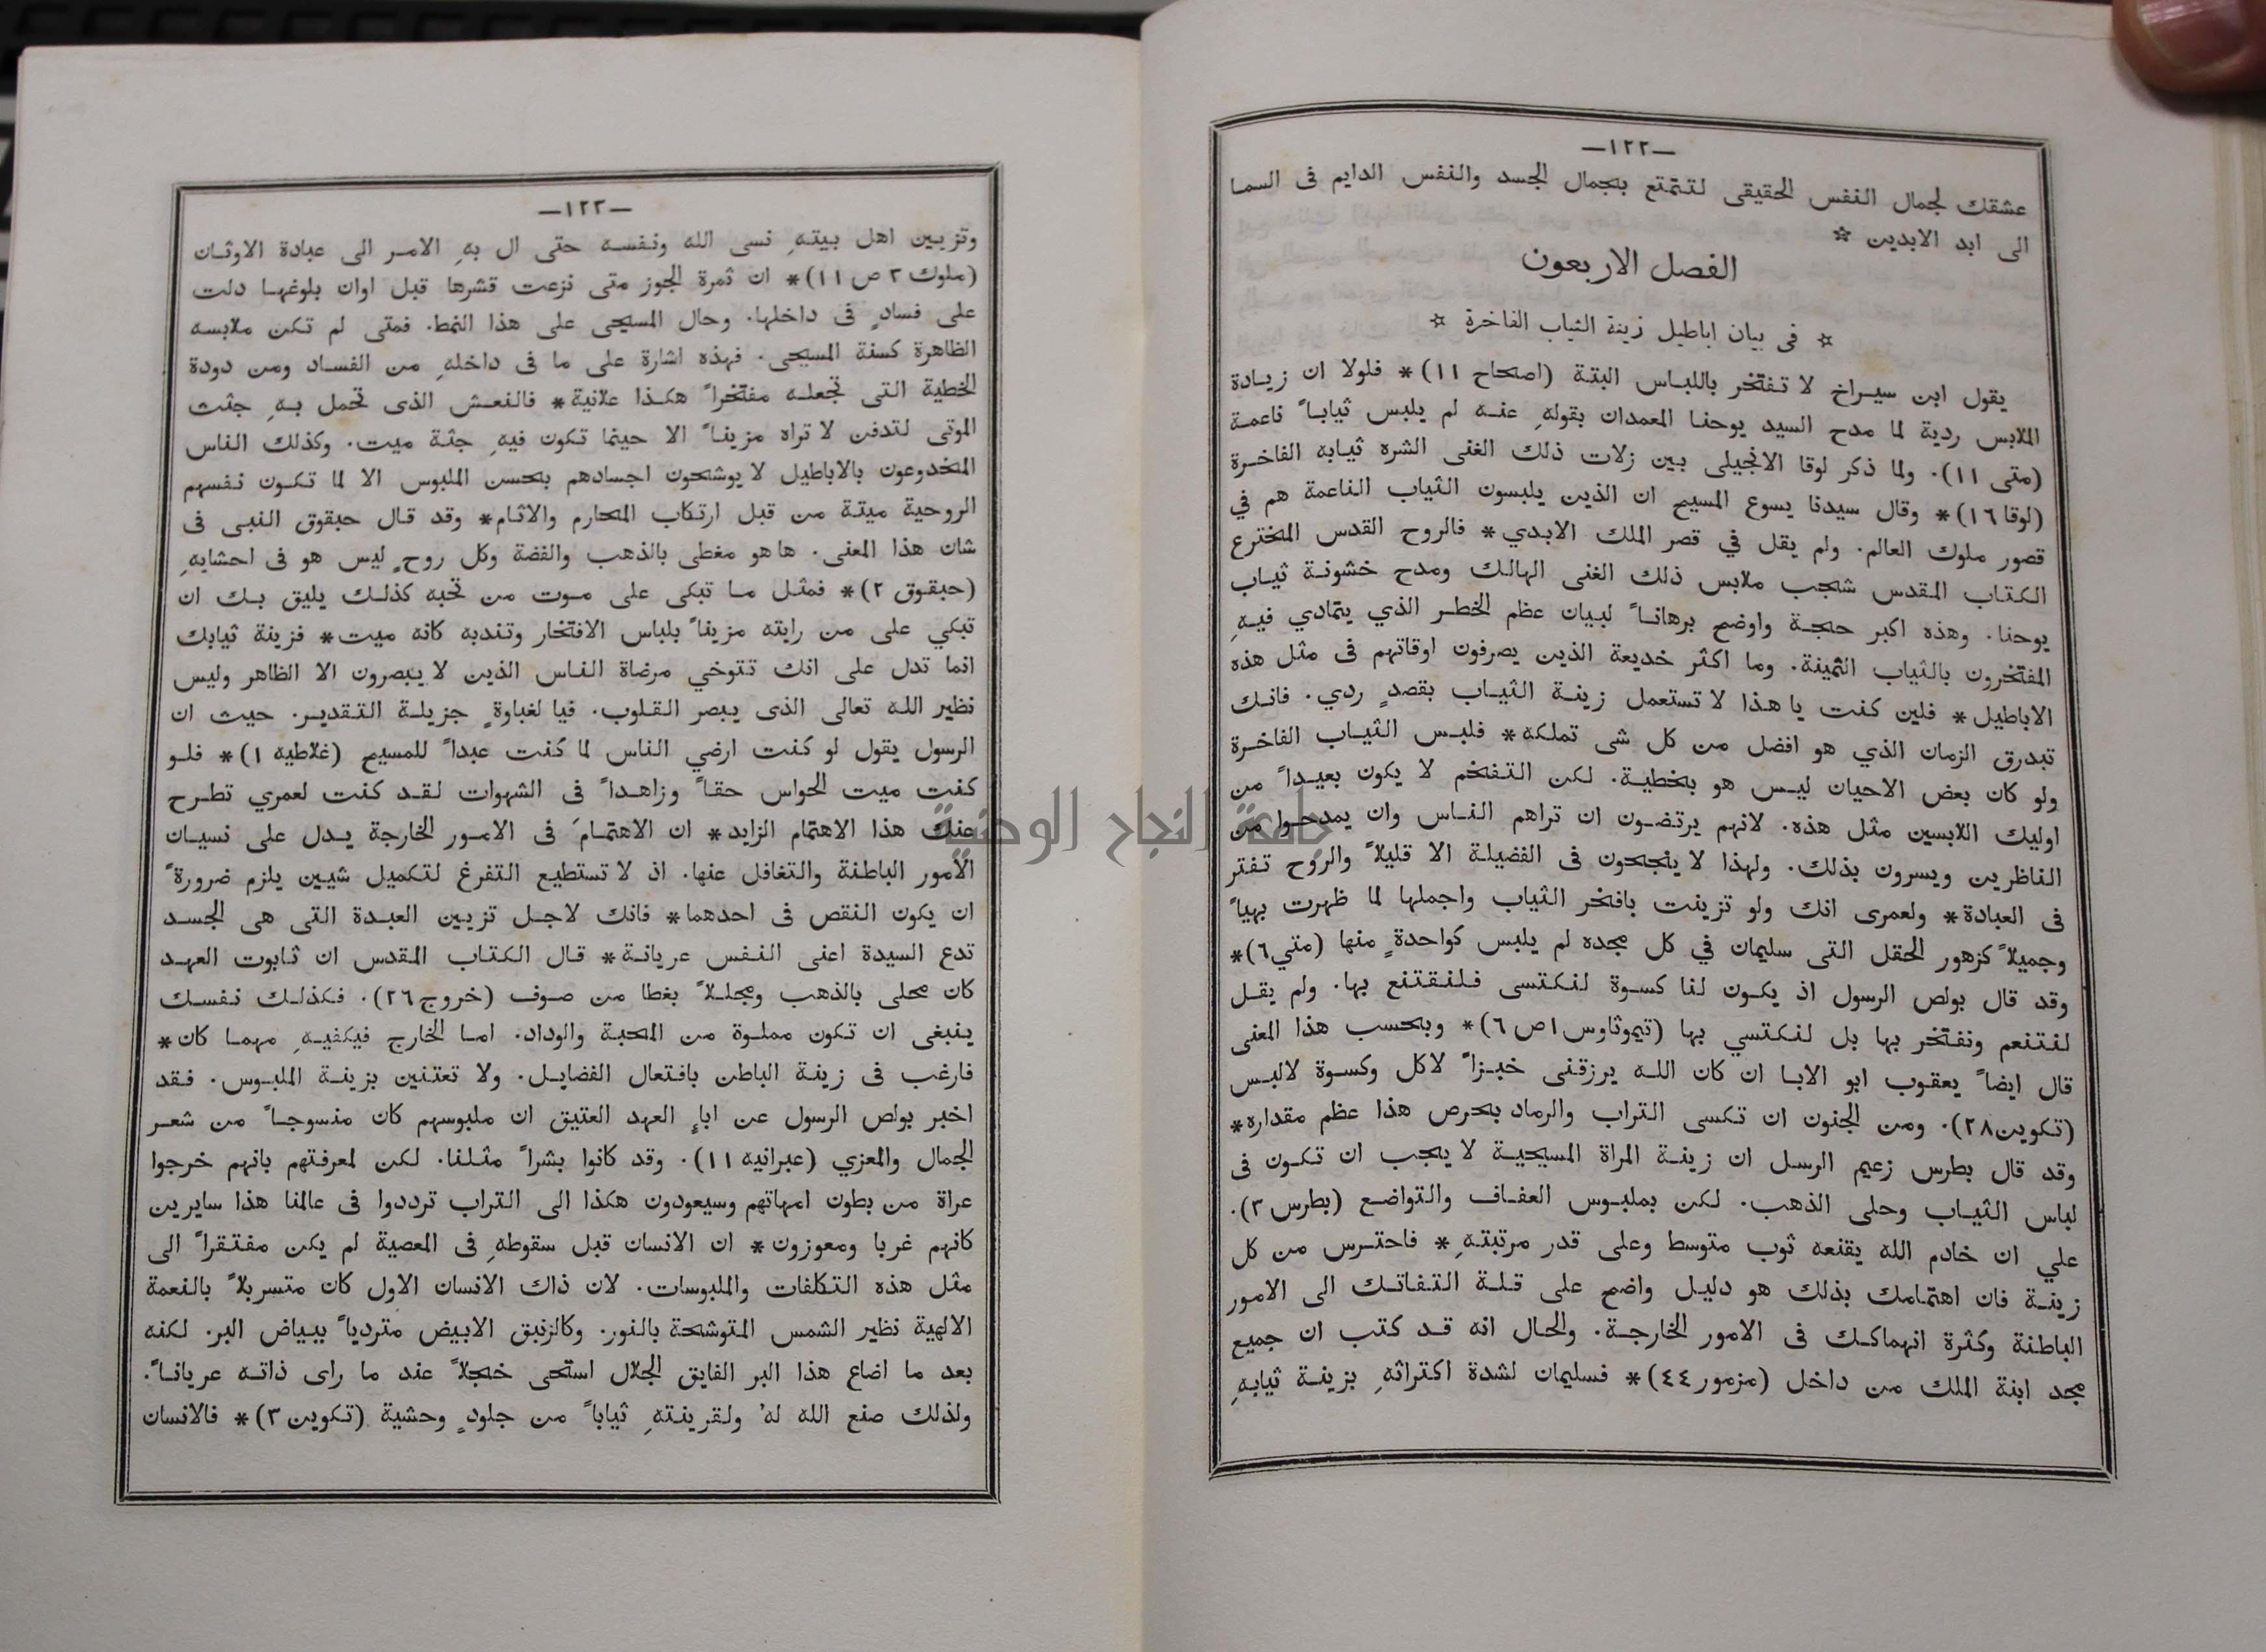 —١٢٢—
عشقك لجمال النفس الحقيقى لتتمتع بجمال الجسد والنفس الدايم فى السما
الى ابد الابدين ☆
الفصل الاربعون
☆ فى بيان اباطيل زينة الثياب الفاخرة ☆
يقول ابن سيراخ لا تفتخر باللباس البتة (اصحاح ١١)* فلولا ان زيادة
الملابس ردية لما مدح السيد يوحنا المعمدان بقولهِ عنه لم يلبس ثياباً ناعمة
(متى ١١). ولما ذكر لوقا الانجيلى بين زلات ذلك الغنى الشره ثيابه الفاخرة
(لوقا ١٦)* وقال سيدنا يسوع المسيح ان الذين يلبسون الثياب الناعمة هم في
قصور ملوك العالم. ولم يقل في قصر الملك الابدي* فالروح القدس المخترع
الكتاب المقدس شجب ملابس ذلك الغنى الهالك ومدح خشونة ثياب
يوحنا. وهذه اكبر حجة واوضح برهاناً لبيان عظم الخطر الذي يتمادي فيهِ
المفتخرون بالثياب الثمينة. وما اكثر خديعة الذين يصرفون اوقاتهم فى مثل هذه
الاباطيل* فلين كنت يا هذا لا تستعمل زينة الثياب بقصدٍ ردي. فانك
تبدرق الزمان الذي هو افضل من كل شى تملكه* فلبس الثياب الفاخرة
ولو كان بعض الاحيان ليس هو بخطية. لكن التفخم لا يكون بعيداً من
اوليك اللابسين مثل هذه. لانهم يرتضون ان تراهم الناس وان يمدحوا من
الناظرين ويسرون بذلك. ولهذا لا ينجحون فى الفضيلة الا قليلاً والروح تفتر
فى العبادة* ولعمرى انك ولو تزينت بافخر الثياب واجملها لما ظهرت بهياً
وجميلاً كزهور الحقل التى سليمان في كل مجده لم يلبس كواحدةٍ منها (متي ٦)*
وقد قال بولص الرسول اذ يكون لنا كسوة لنكتسى فلنقتنع بها. ولم يقل
لنتنعم ونفتخر بها بل لنكتسي بها (تيموثاوس ١ ص ٦)* وبحسب هذا المعنى
قال ايضاً يعقوب ابو الابا ان كان الله يرزقنى خبزاً لاكل وكسوة لالبس
(تكوين ٢٨). ومن الجنون ان تكسى التراب والرماد بحرص هذا عظم مقداره*
وقد قال بطرس زعيم الرسل ان زينة المراة المسيحية لا يجب ان تكون فى
لباس الثياب وحلى الذهب. لكن بملبوس العفاف والتواضع (بطرس ٣).
علي ان خادم الله يقنعه ثوب متوسط وعلى قدر مرتبتهِ* فاحترس من كل
زينة فان اهتمامك بذلك هو دليل واضح على قلة التفاتك الى الامور
الباطنة وكثرة انهماكك فى الامور الخارجة. والحال انه قد كتب ان جميع
مجد ابنة الملك من داخل (مزمور ٤٤)* فسليمان لشدة اكتراثهِ بزينة ثيابهِ
—١٢٣—
وتزيين اهل بيتهِ نسى الله ونفسه حتى ال بهِ الامر الى عبادة الاوثان
(ملوك ٣ ص ١١)* ان ثمرة الجوز متى نزعت قشرها قبل اوان بلوغها دلت
على فسادٍ فى داخلها. وحال المسيحى على هذا النمط. فمتى لم تكن ملابسه
الظاهرة كسنة المسيحى. فهذه اشارة على ما فى داخلهِ من الفساد ومن دودة
الخطية التى تجعله مفتخراً هكذا علانية* فالنعش الذى تحمل بهِ جثث
الموتى لتدفن لا تراه مزيناً الا حينما تكون فيهِ جثة ميت. وكذلك الناس
المخدوعون بالاباطيل لا يوشحون اجسادهم بحسن الملبوس الا لما تكون نفسهم
الروحية ميتة من قبل ارتكاب المحارم والاثام* وقد قال حبقوق النبى فى
شان هذا المعنى. ها هو مغطى بالذهب والفضة وكل روحٍ ليس هو فى احشايهِ
(حبقوق ٢)* فمثل ما تبكى على موت من تحبه كذلك يليق بك ان
تبكي على من رايته مزيناً بلباس الافتخار وتندبه كانه ميت* فزينة ثيابك
انما تدل على انك تتوخي مرضاة الناس الذين لا يبصرون الا الظاهر وليس
نظير الله تعالى الذى يبصر القلوب. فيا لغباوةٍ جزيلة التقدير. حيث ان
الرسول يقول لو كنت ارضي الناس لما كنت عبداً للمسيح (غلاطيه ١)* فلو
كنت ميت الحواس حقاً وزاهداً فى الشهوات لقد كنت لعمري تطرح
عنك هذا الاهتمام الزايد* ان الاهتمامَ فى الامور الخارجة يدل على نسيان
الأمور الباطنة والتغافل عنها. اذ لا تستطيع التفرغ لتكميل شيين يلزم ضرورةً
ان يكون النقص فى احدهما* فانك لاجل تزيين العبدة التى هى الجسد
تدع السيدة اعنى النفس عريانة* قال الكتاب المقدس ان ثابوت العهد
كان محلى بالذهب ومجللاً بغطا من صوف (خروج ٢٦). فكذلك نفسك
ينبغى ان تكون مملوة من المحبة والوداد. اما الخارج فيكفيهِ مهما كان*
فارغب فى زينة الباطن بافتعال الفضايل. ولا تعتنين بزينة الملبوس. فقد
اخبر بولص الرسول عن اباءِ العهد العتيق ان ملبوسهم كان منسوجاً من شعر
الجمال والمعزي (عبرانيه ١١). وقد كانوا بشراً مثلنا. لكن لمعرفتهم بانهم خرجوا
عراة من بطون امهاتهم وسيعودون هكذا الى التراب ترددوا فى عالمنا هذا سايرين
كانهم غربا ومعوزون* ان الانسان قبل سقوطهِ فى المعصية لم يكن مفتقراً الى
مثل هذه التكلفات والملبوسات. لان ذاك الانسان الاول كان متسربلاً بالنعمة
الالهية نظير الشمس المتوشحة بالنور. وكالزنبق الابيض متردياً ببياض البر. لكنه
بعد ما اضاع هذا البر الفايق الجلال استحى خجلاً عند ما راى ذاته عرياناً.
ولذلك صنع الله لهُ ولقرينتهِ ثياباً من جلودٍ وحشية (تكوين ٣)* فالانسان
جامعة النجاح الوطنية